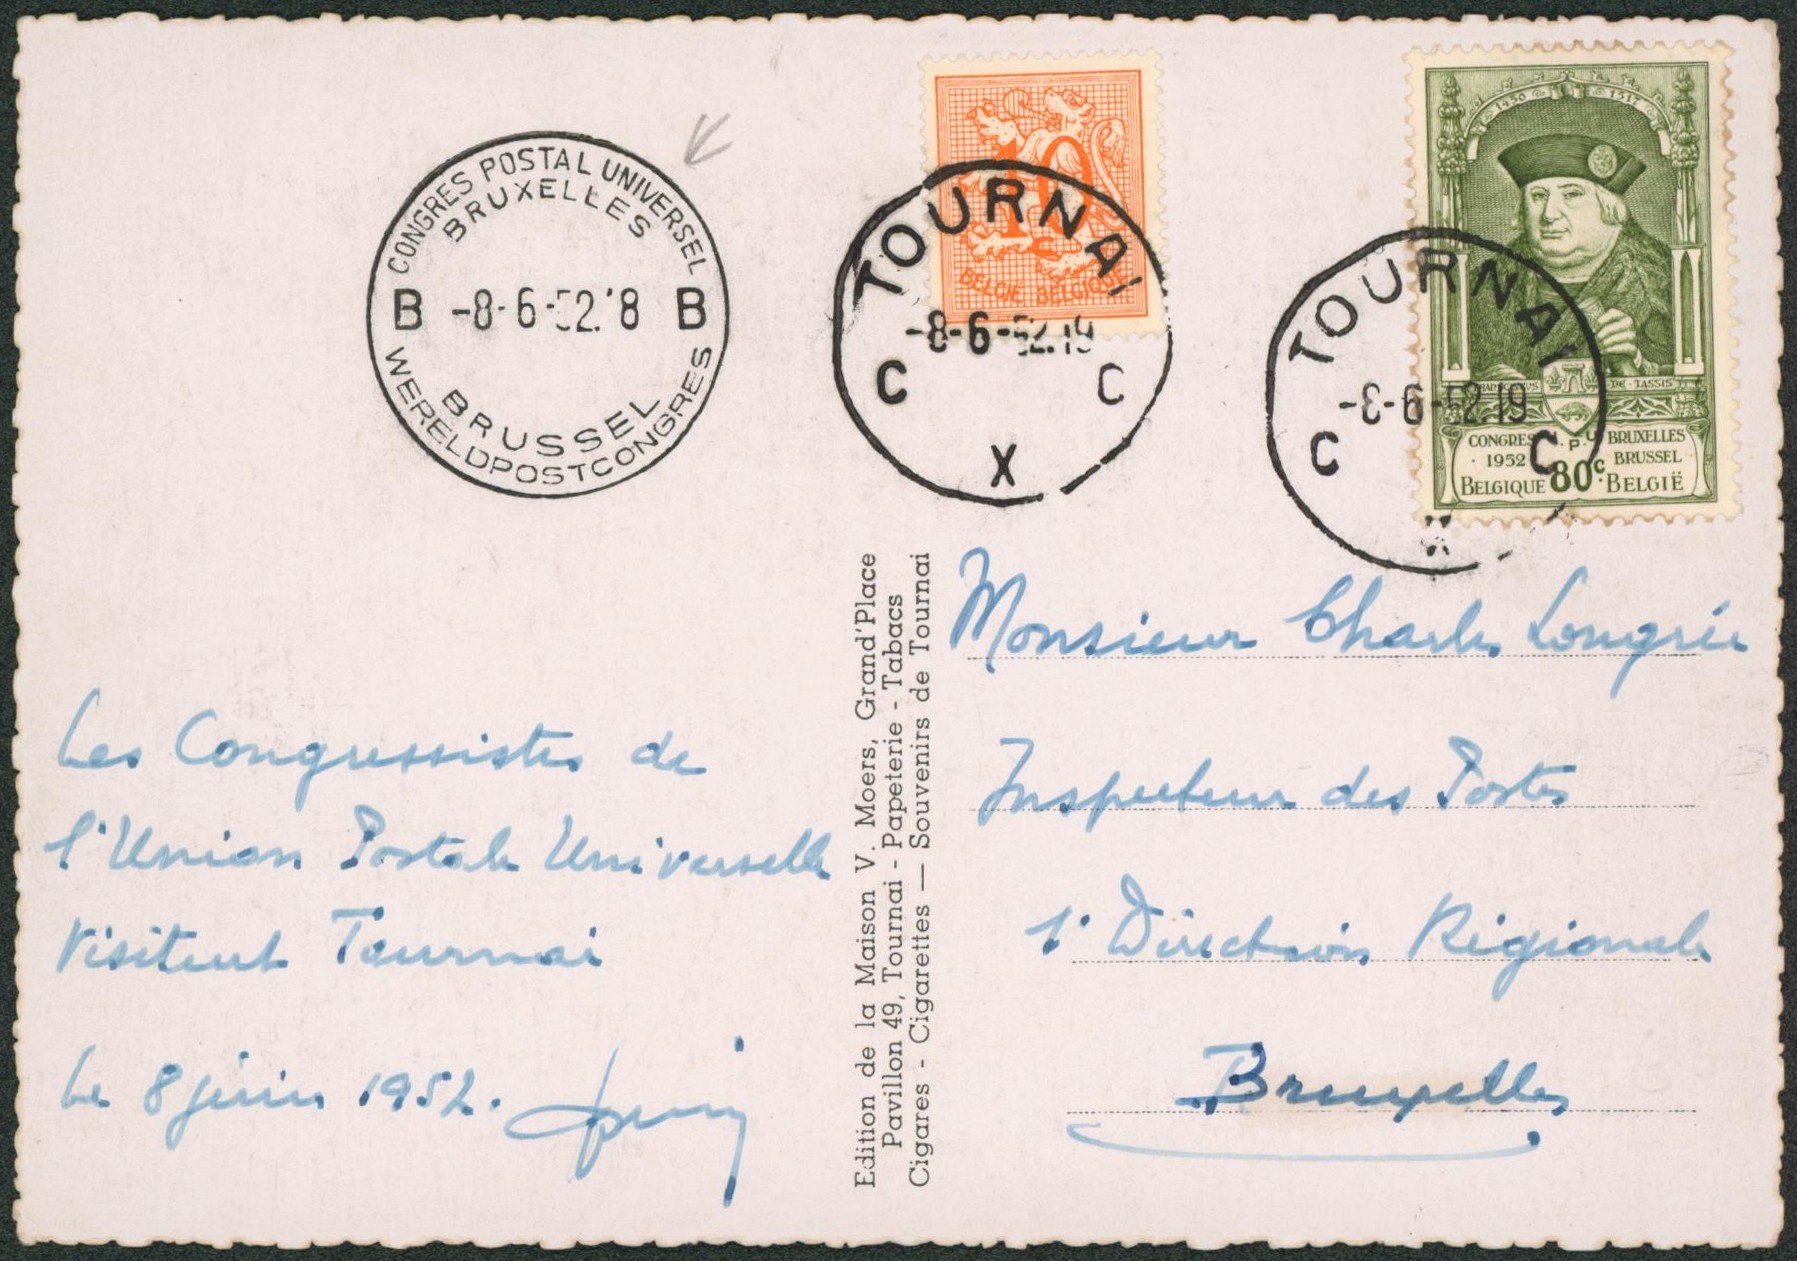 CONGRES POSTAL UNIVERSEL
BRUXELLES
B -8-6-52.18 B
BRUSSEL
WERELDPOSTCONGRES
10
c
BELGIË BELGIQUE
TOURNAI
-8-6-52.19
C C
X
1450 1517
FRANCISCUS DE TASSIS
CONGRES U.P.U. BRUXELLES
1952 BRUSSEL
BELGIQUE 80c. BELGIË
TOURNAI
-8-6-52.19
C C
X
Les Congressistes de
l'Union Postale Universelle
visitent Tournai
Le 8 juin 1952.
Edition de la Maison V. Moers, Grand'Place
Pavillon 49, Tournai - Papeterie - Tabacs
Cigares - Cigarettes — Souvenirs de Tournai
Monsieur Charles Longrée
Inspecteur des Postes
1e Direction Régionale
Bruxelles